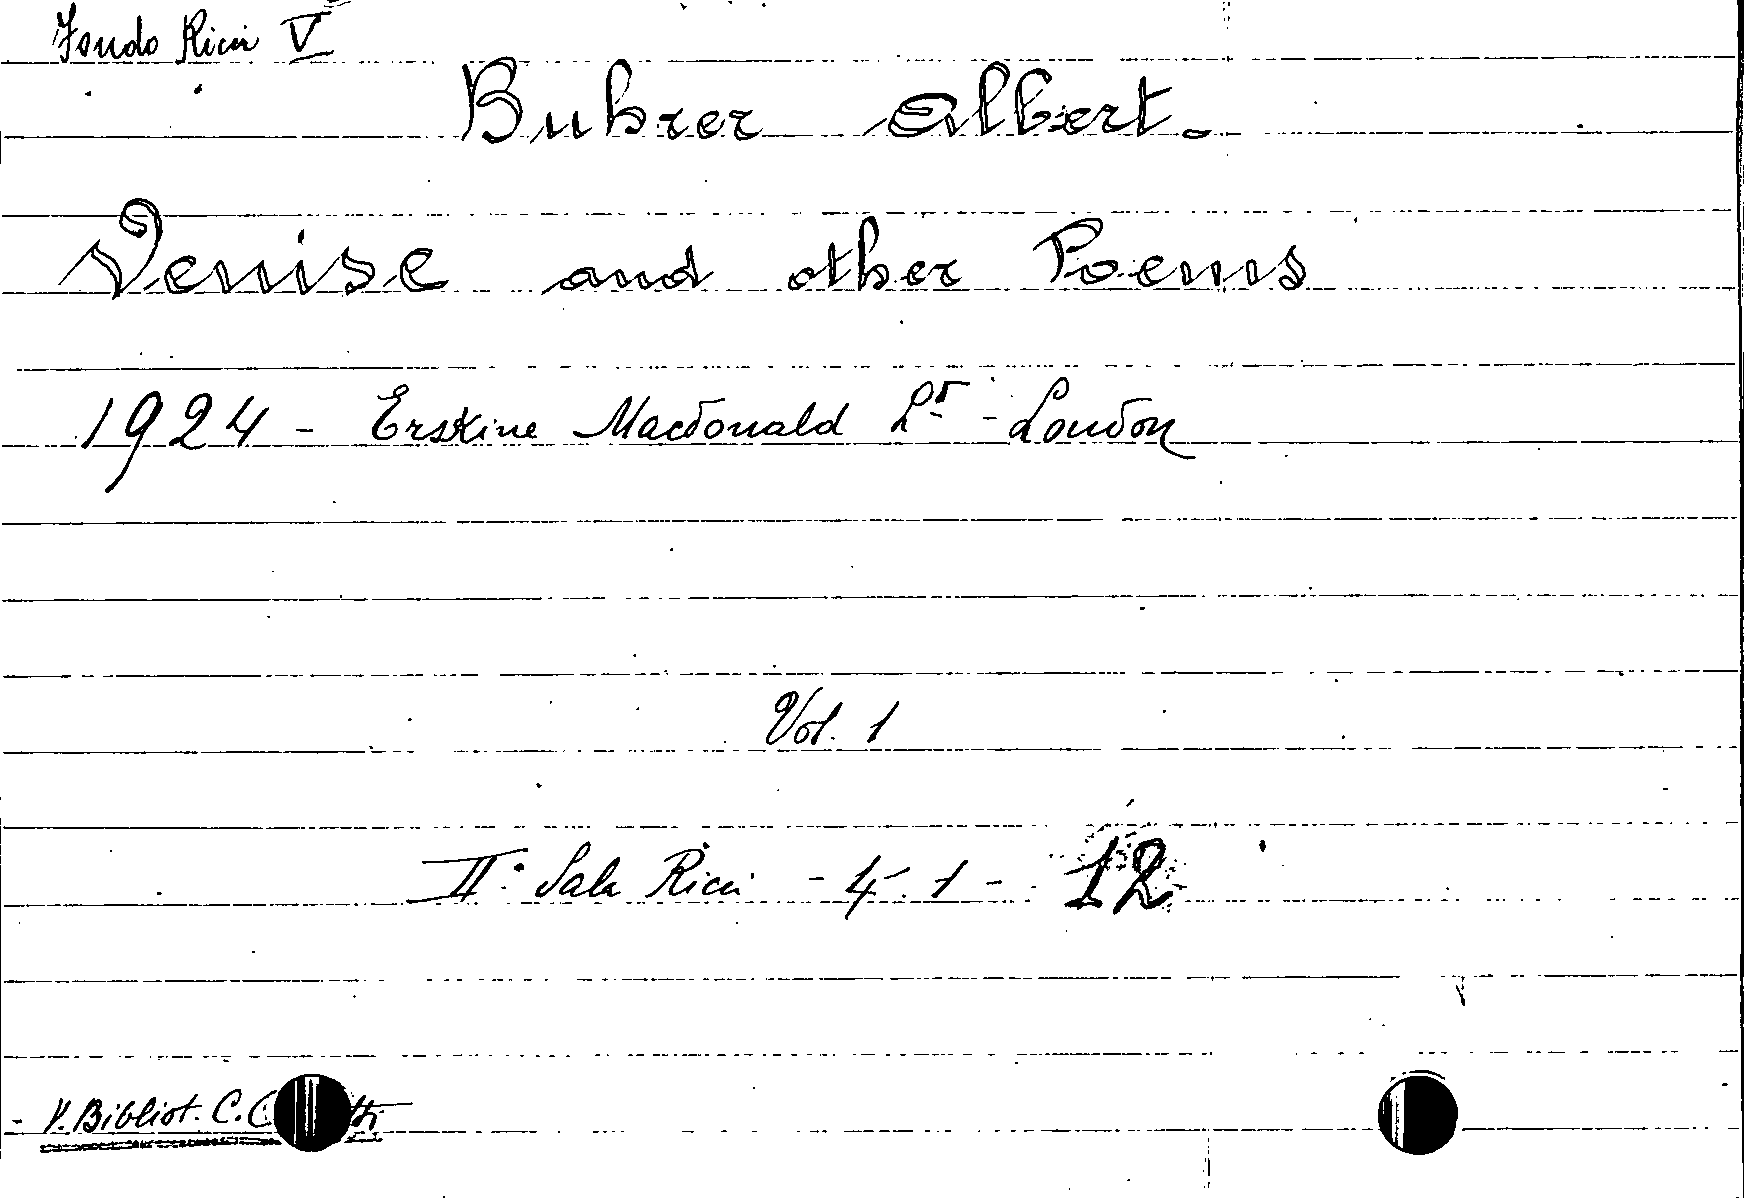 Fondo Ricci V
Buhrer Albert.
Venise and other Poems
1924 - Erskine Macdonald Lt - London
Vol. 1
IIa Sala Ricci - 4.1 - 12
V. Bibliot. C. C